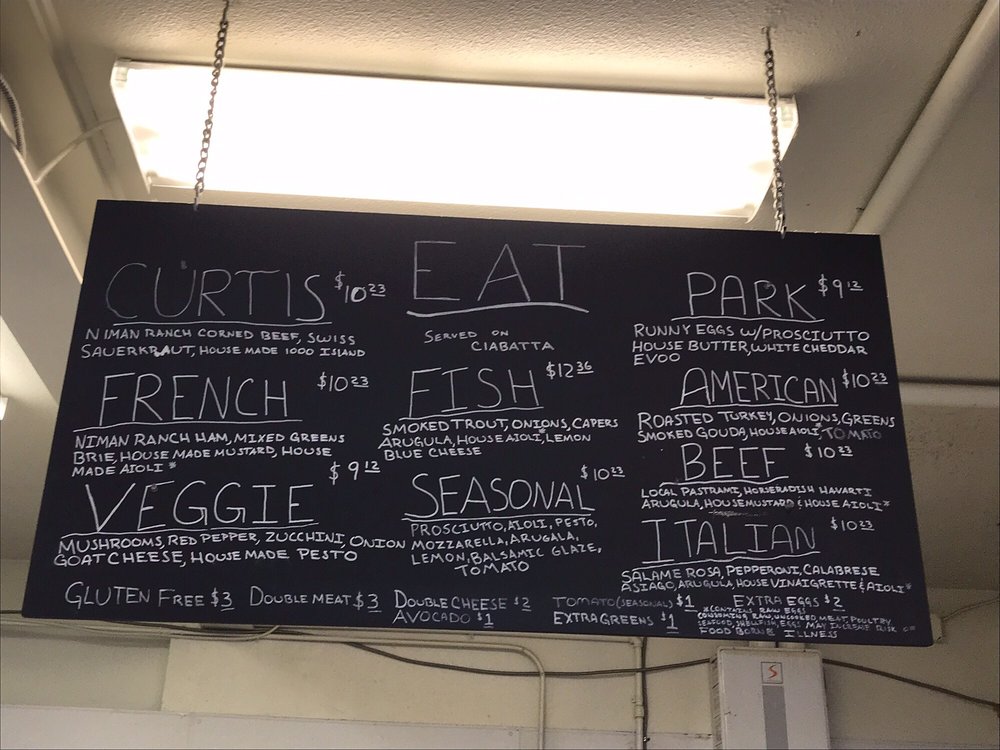 EAT
SERVED ON
CIABATTA
CURTIS $10.23
NIMAN RANCH CORNED BEEF, SWISS
SAUERKRAUT, HOUSE MADE 1000 ISLAND
FRENCH $10.23
NIMAN RANCH HAM, MIXED GREENS
BRIE, HOUSE MADE MUSTARD, HOUSE
MADE AIOLI *
VEGGIE $9.12
MUSHROOMS, RED PEPPER, ZUCCHINI, ONION
GOAT CHEESE, HOUSE MADE PESTO
FISH $12.36
SMOKED TROUT, ONIONS, CAPERS
ARUGULA, HOUSE AIOLI*, LEMON
BLUE CHEESE
SEASONAL $10.23
PROSCIUTTO, AIOLI, PESTO,
MOZZARELLA, ARUGALA,
LEMON, BALSAMIC GLAZE,
TOMATO
PARK $9.12
RUNNY EGGS W/PROSCIUTTO
HOUSE BUTTER, WHITE CHEDDAR
EVOO
AMERICAN $10.23
ROASTED TURKEY, ONIONS, GREENS
SMOKED GOUDA, HOUSE AIOLI*, TOMATO
BEEF $10.23
LOCAL PASTRAMI, HORSERADISH HAVARTI
ARUGULA, HOUSE MUSTARD & HOUSE AIOLI*
ITALIAN $10.23
SALAME ROSA, PEPPERONI, CALABRESE
ASIAGO, ARUGULA, HOUSE VINAIGRETTE & AIOLI*
GLUTEN FREE $3 DOUBLE MEAT $3 DOUBLE CHEESE $2 TOMATO (SEASONAL) $1 EXTRA EGGS $2
AVOCADO $1 EXTRA GREENS $1
*CONTAINS RAW EGGS
CONSUMING RAW, UNCOOKED, MEAT, POULTRY
SEAFOOD, SHELLFISH, EGGS MAY INCREASE RISK OF
FOOD BORNE ILLNESS
S